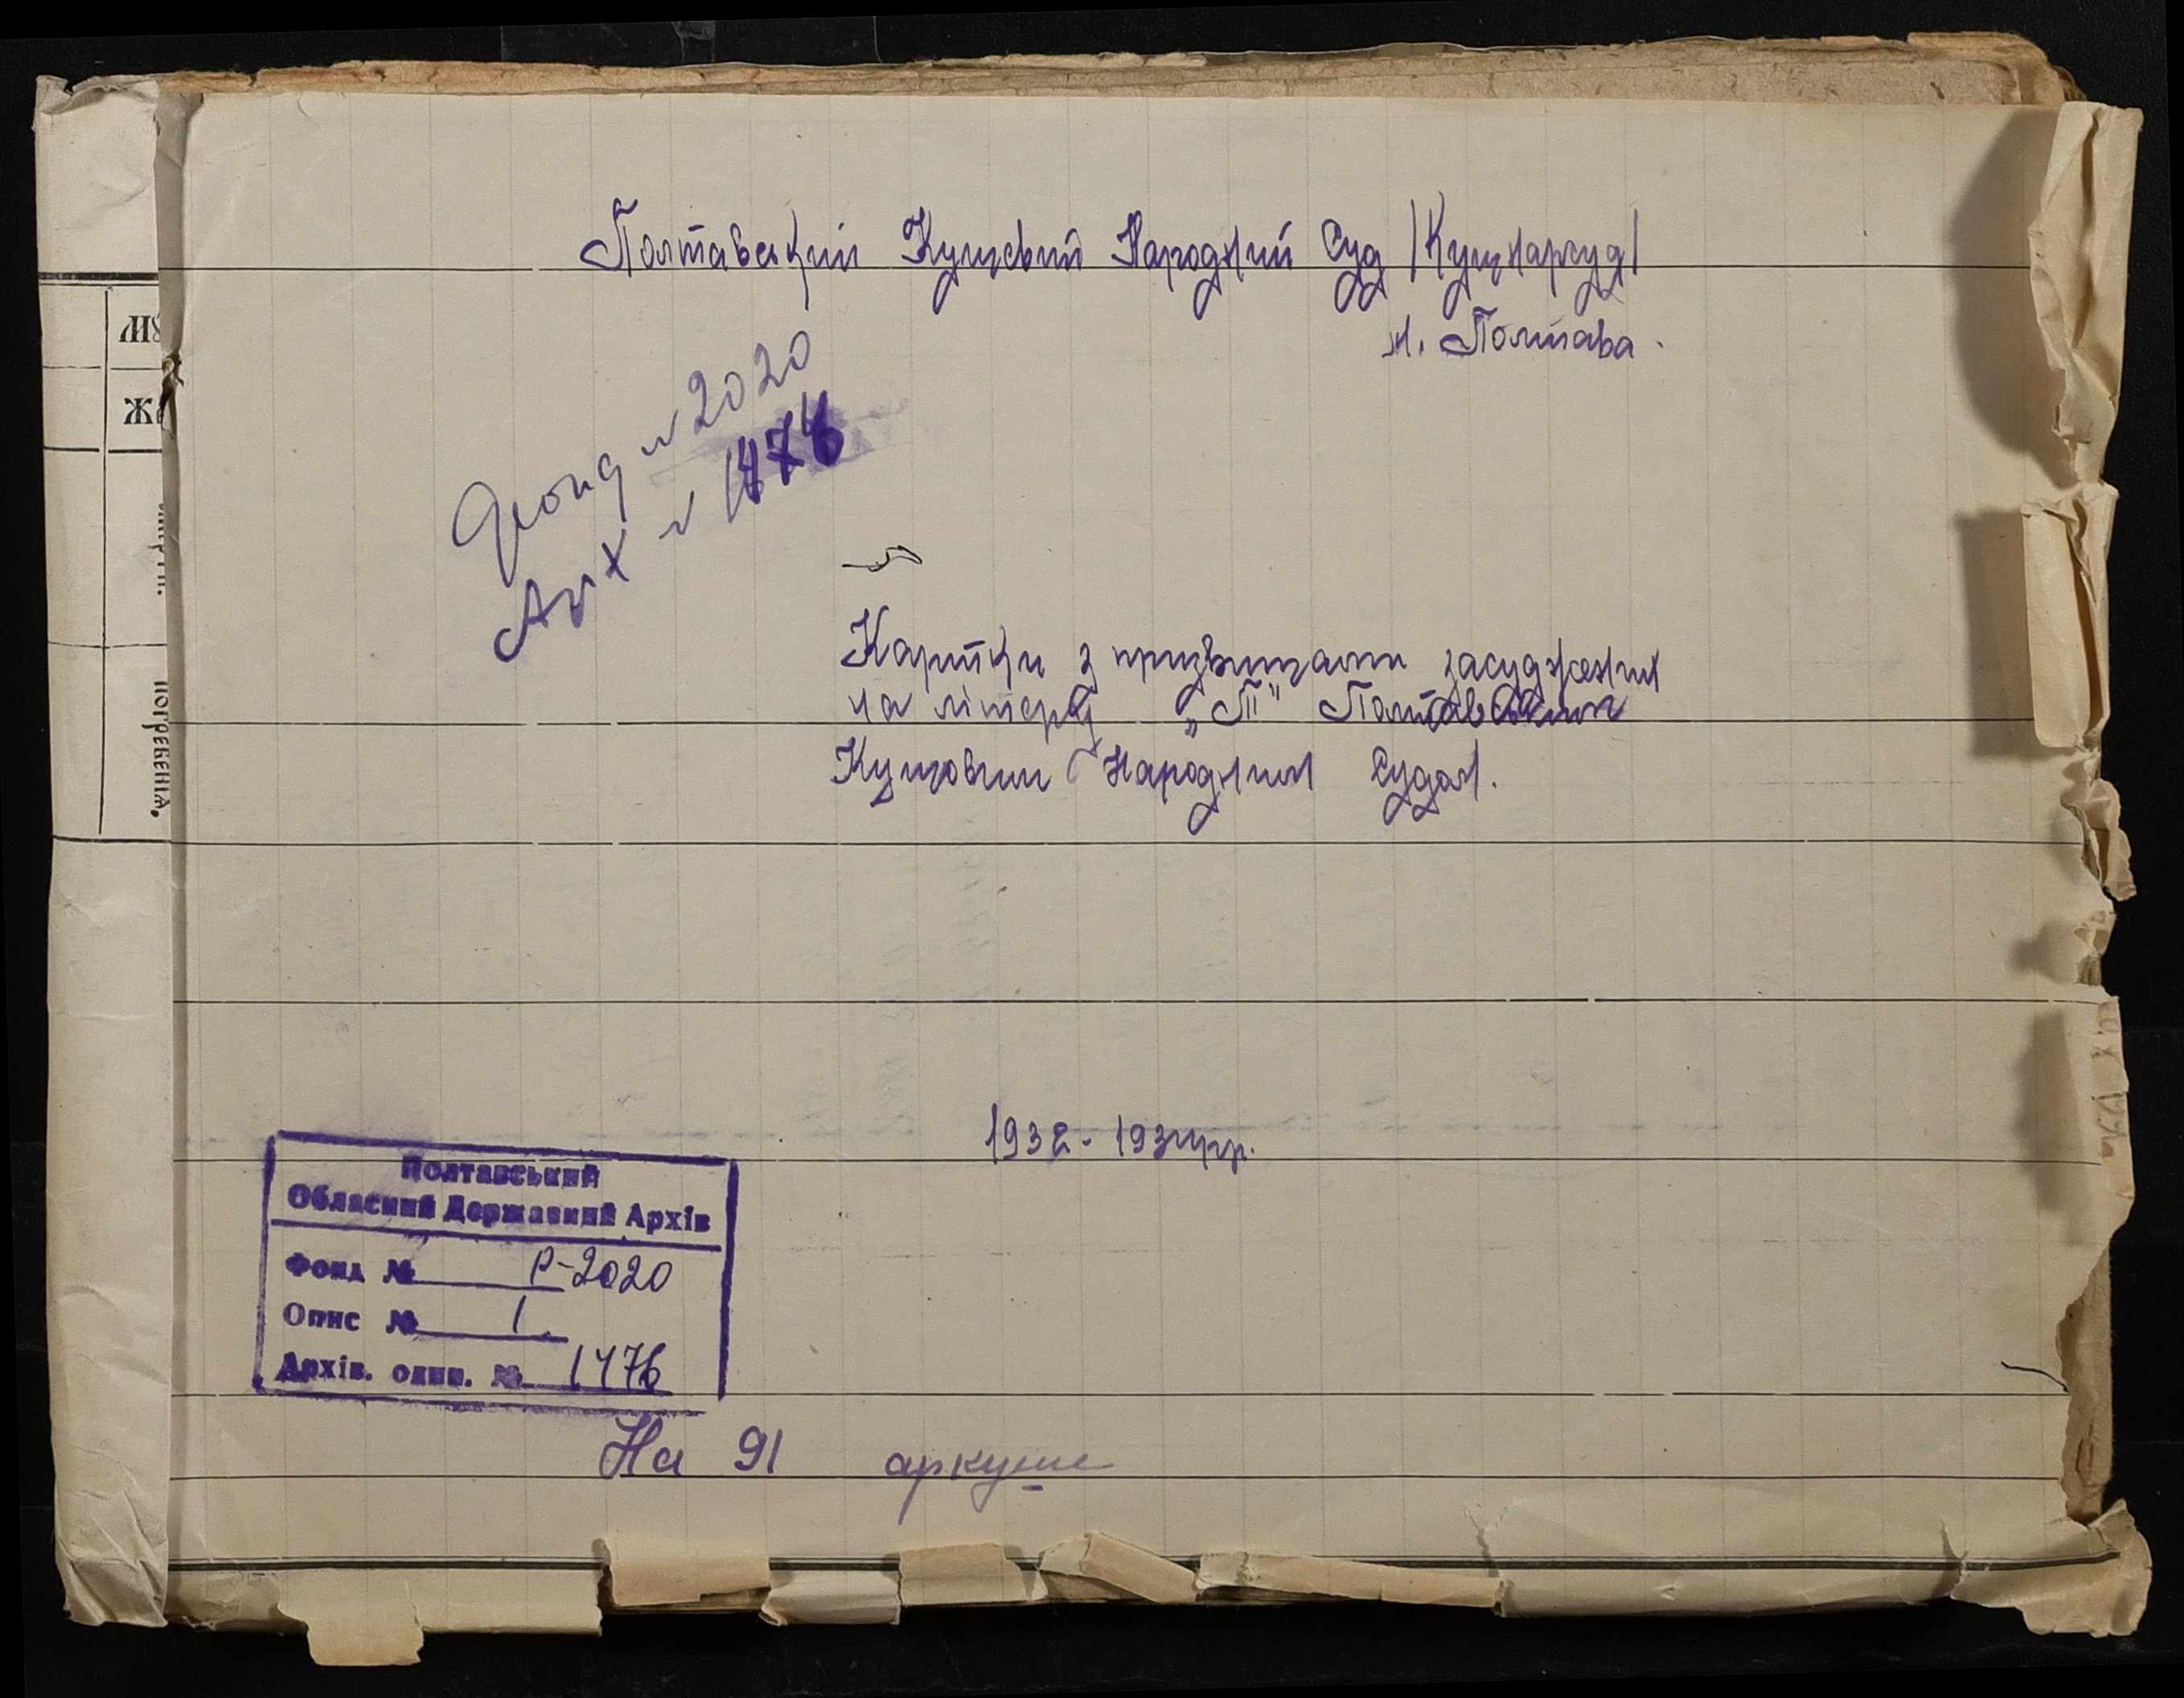 Полтавский Кущевий Народний Суд /Кущнарсуд/
м. Полтава.
Фонд № 2020
Арх № 1476
Картки з призвищами засуджених
на літеру „П" Полтавським
Кущовим Народним Судом.
1932 - 1934рр.
Полтавський
Обласний Державний Архів
Фонд № Р-2020
Опис № 1
Архів. один. № 1476
На 91 аркуше
МУ
Ж
погребенія.